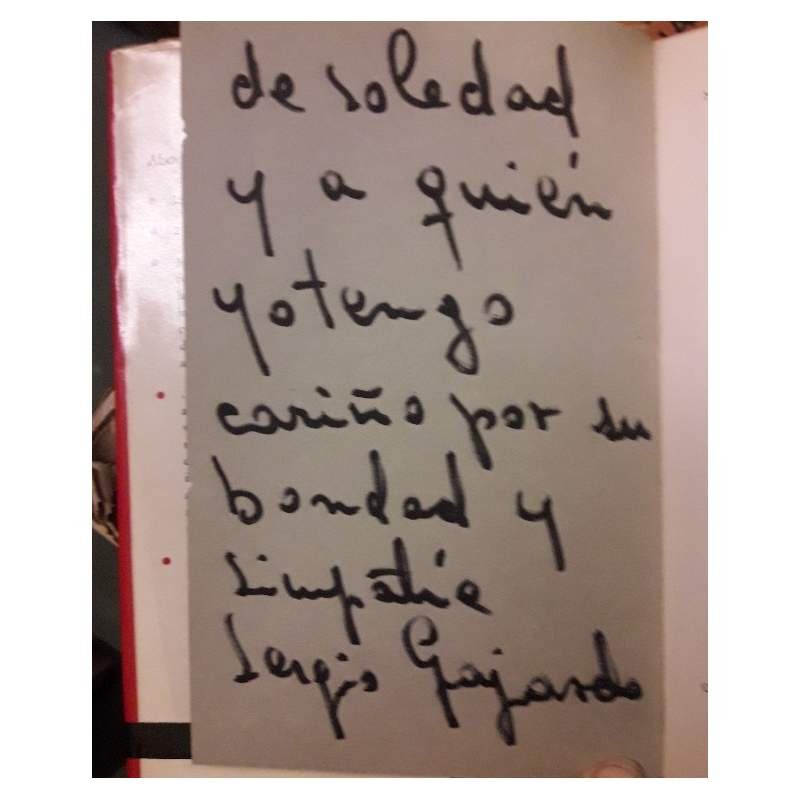 de soledad
y a quién
yo tengo
cariño por su
bondad y
simpatía
Sergio Gajardo